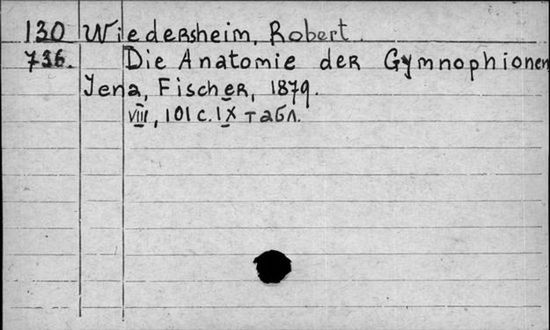 130 Wiedersheim, Robert.
736. Die Anatomie der Gymnophionen
Jena, Fischer, 1879.
VIII, 101 с. IX табл.